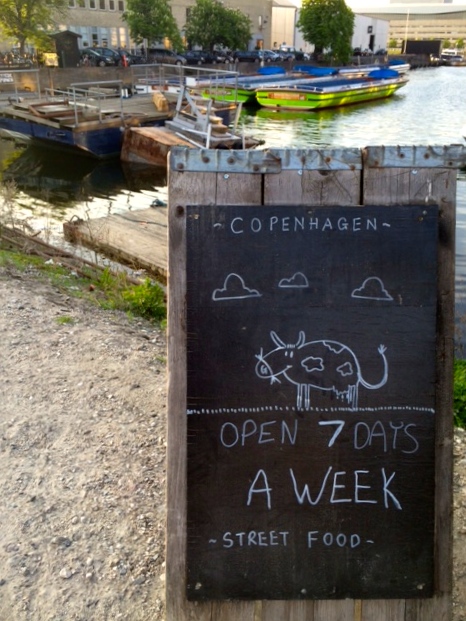 ~COPENHAGEN~
OPEN 7 DAYS
A WEEK
~STREET FOOD~